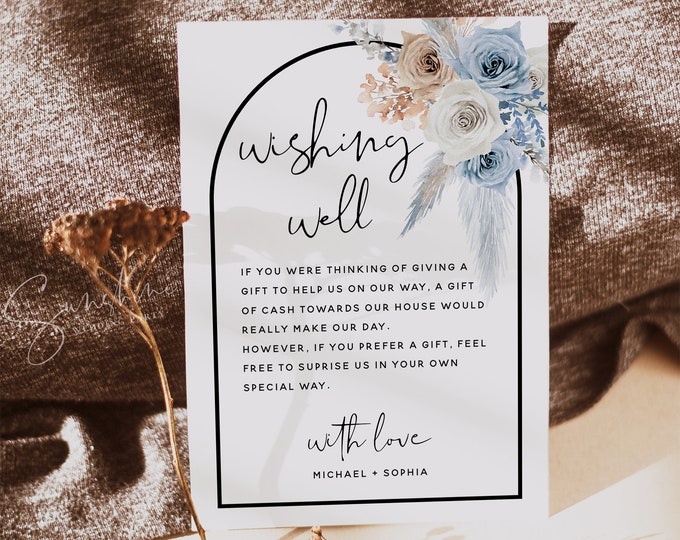 wishing
well
IF YOU WERE THINKING OF GIVING A
GIFT TO HELP US ON OUR WAY, A GIFT
OF CASH TOWARDS OUR HOUSE WOULD
REALLY MAKE OUR DAY.
HOWEVER, IF YOU PREFER A GIFT, FEEL
FREE TO SUPRISE US IN YOUR OWN
SPECIAL WAY.
with love
MICHAEL + SOPHIA
Sunshine